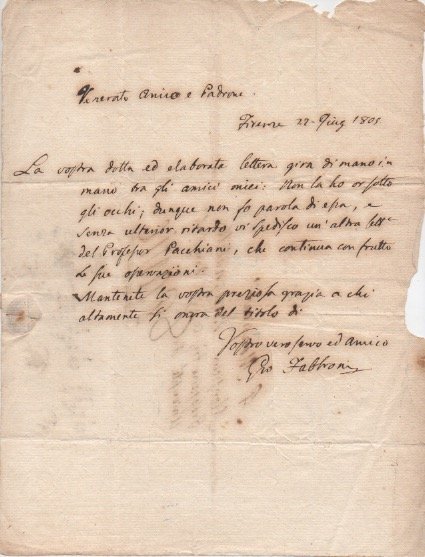 Venerato Amico e Padrone.
Firenze 22 Giug 1805
La vostra dotta ed elaborata lettera gira di mano in
mano tra gli amici miei: Non la ho or sotto
gli occhi; dunque non fo parola di essa, e
senza ulterior ritardo vi spedisco un' altra lett.ª
del Professor Pacchiani, che continua con frutto
le sue osservazioni.
Mantenete la vostra preziosa grazia a chi
altamente si onora del titolo di
Vostro vero servo ed Amico
Gio Fabbroni